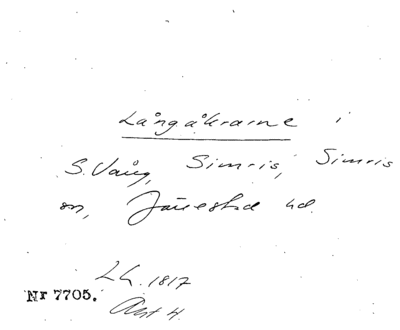 Långåkrarne i
S. Vång, Simris, Simris
sn, Järrestad hd.
Lh. 1817
Nr 7705.
Akt 4.